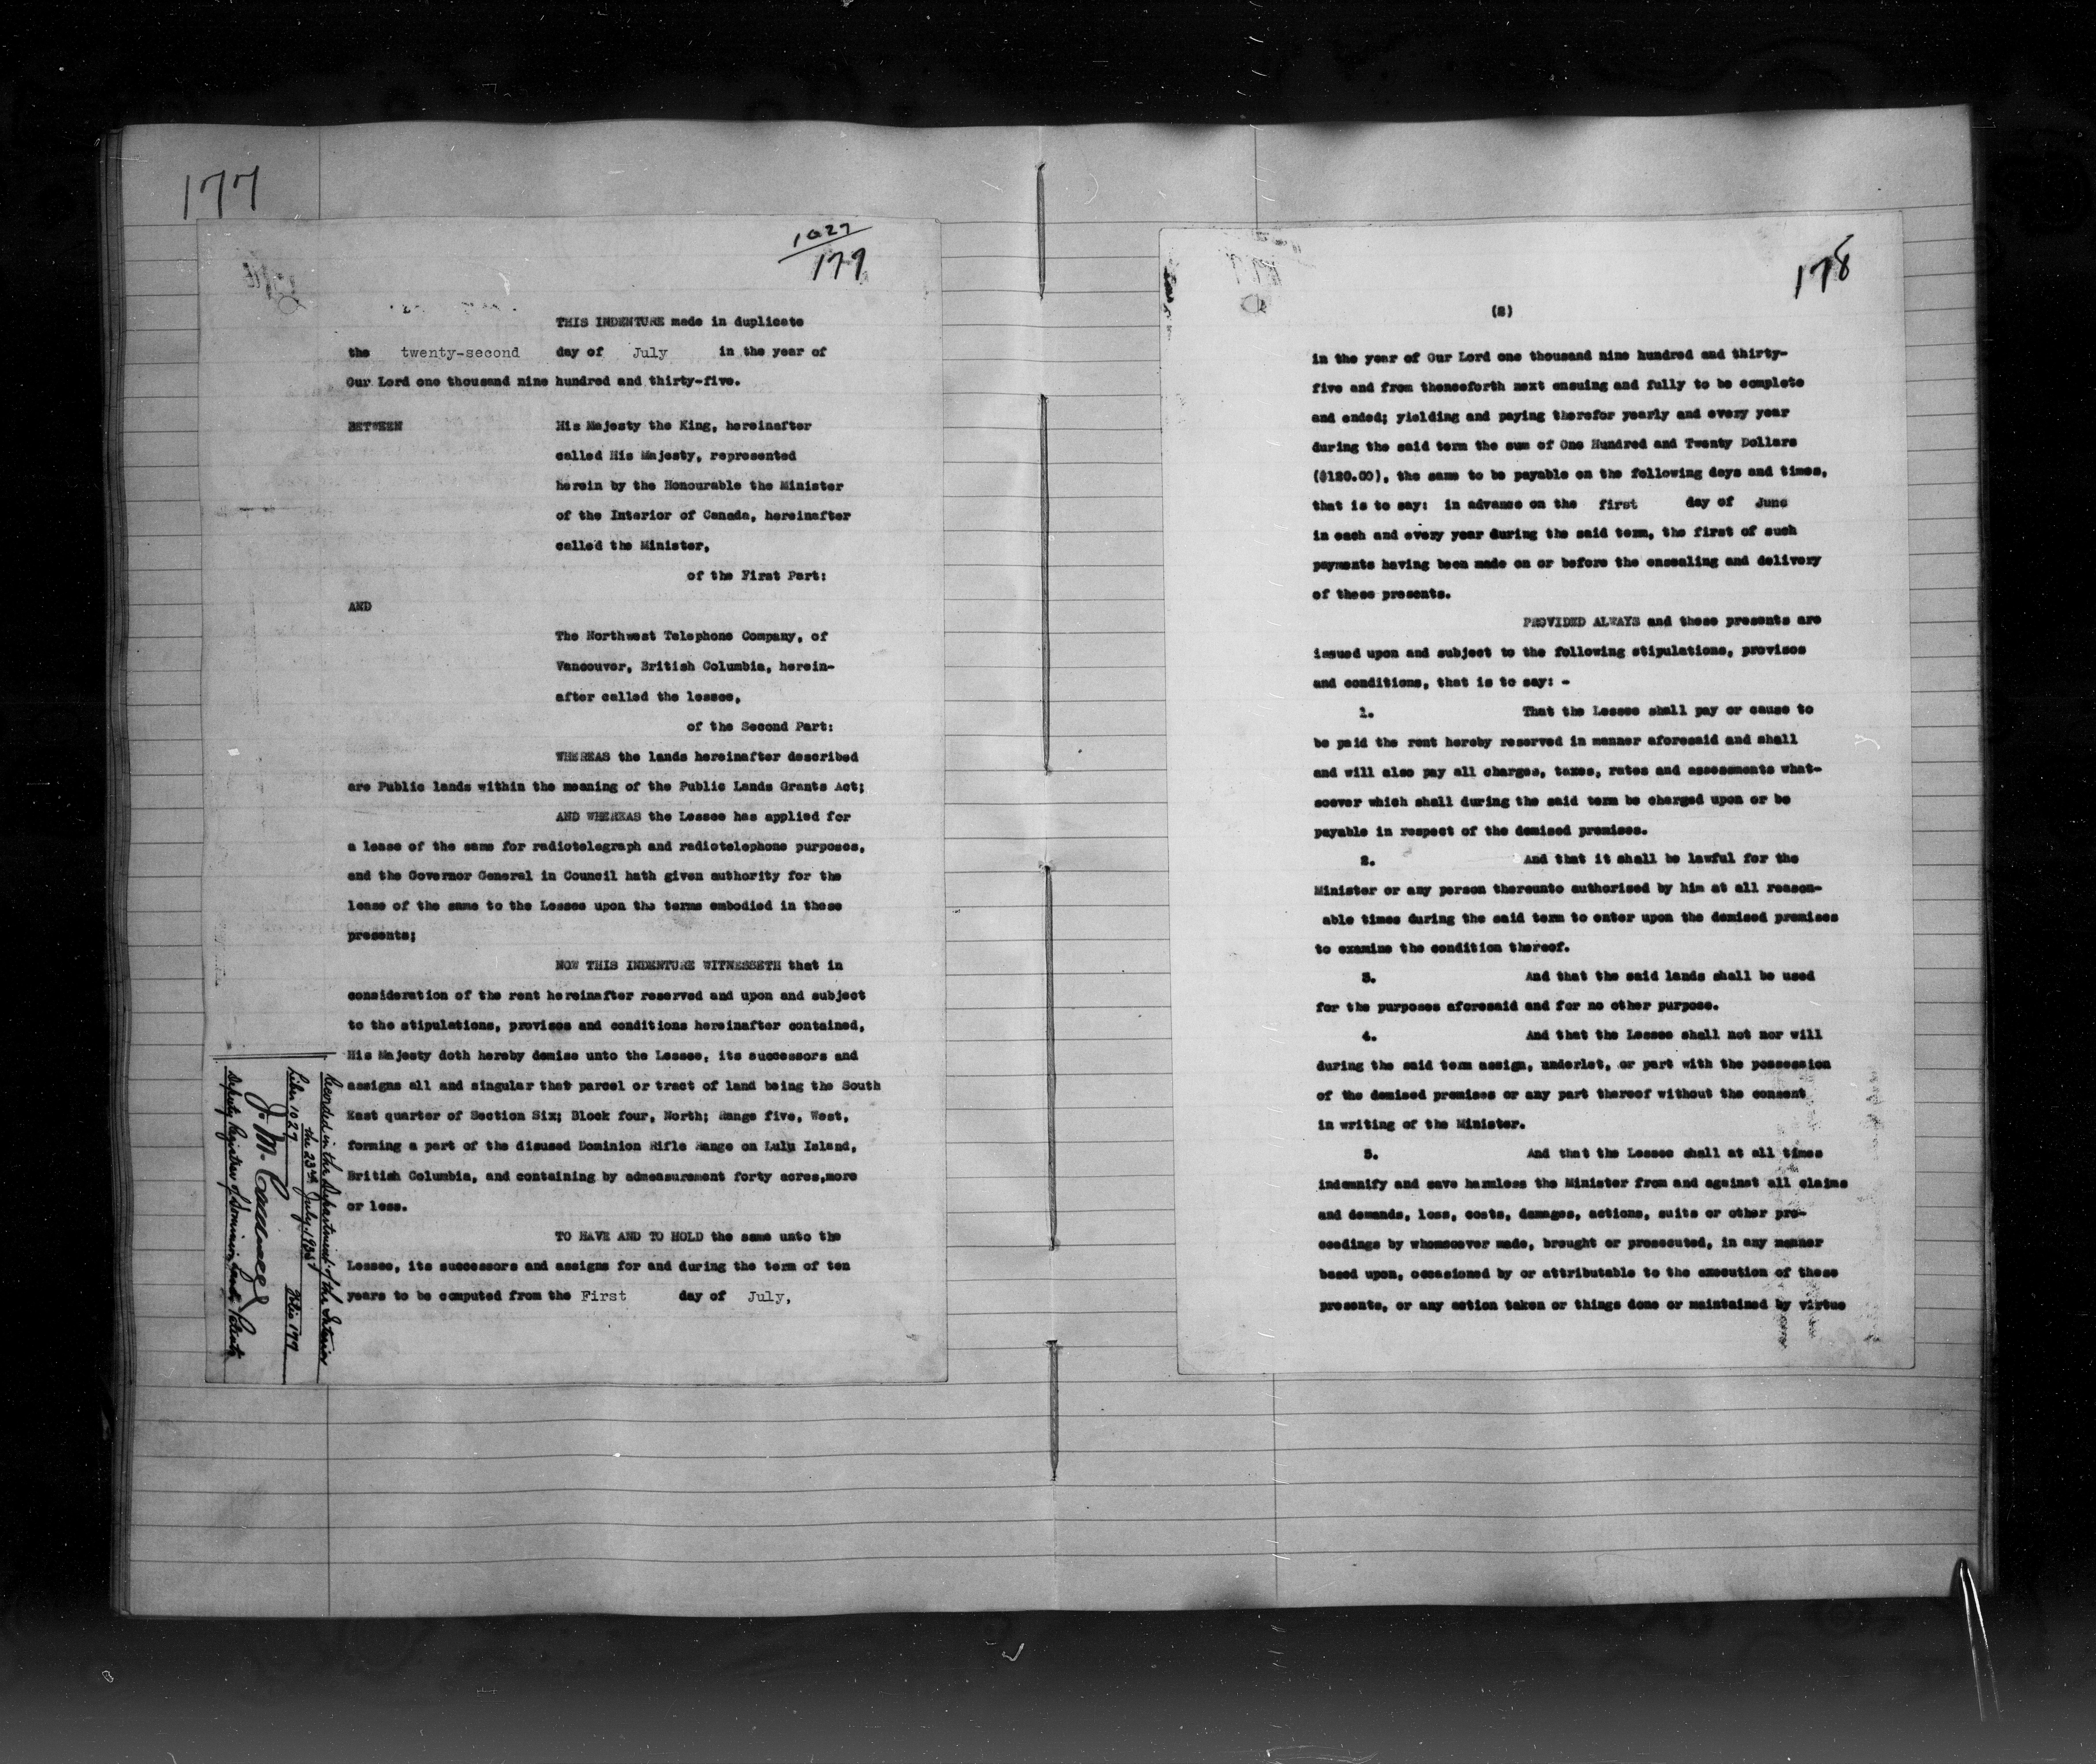 177
1027
177
THIS INDENTURE made in duplicate
the twenty-second day of July in the year of
Our Lord one thousand nine hundred and thirty-five.
BETWEEN His Majesty the King, hereinafter
called His Majesty, represented
herein by the Honourable the Minister
of the Interior of Canada, hereinafter
called the Minister,
of the First Part:
AND
The Northwest Telephone Company, of
Vancouver, British Columbia, herein-
after called the lessee,
of the Second Part:
WHEREAS the lands hereinafter described
are Public lands within the meaning of the Public Lands Grants Act;
AND WHEREAS the Lessee has applied for
a lease of the same for radiotelegraph and radiotelephone purposes,
and the Governor General in Council hath given authority for the
lease of the same to the Lessee upon the terms embodied in these
presents;
NOW THIS INDENTURE WITNESSETH that in
consideration of the rent hereinafter reserved and upon and subject
to the stipulations, provisos and conditions hereinafter contained,
His Majesty doth hereby demise unto the Lessee, its successors and
assigns all and singular that parcel or tract of land being the South
East quarter of Section Six; Block four, North; Range five, West,
forming a part of the disused Dominion Rifle Range on Lulu Island,
British Columbia, and containing by admeasurement forty acres,more
or less.
TO HAVE AND TO HOLD the same unto the
Lessee, its successors and assigns for and during the term of ten
years to be computed from the First day of July,
Recorded in the Department of the Interior
the 23rd July, 1935
Liber 1027 Folio 177
J. M.
Deputy Registrar of Dominion Lands Patents
178
(2)
in the year of Our Lord one thousand nine hundred and thirty-
five and from thenceforth next ensuing and fully to be complete
and ended; yielding and paying therefor yearly and every year
during the said term the sum of One Hundred and Twenty Dollars
($120.00), the same to be payable on the following days and times,
that is to say: in advance on the first day of June
in each and every year during the said term, the first of such
payments having been made on or before the ensealing and delivery
of these presents.
PROVIDED ALWAYS and these presents are
issued upon and subject to the following stipulations, provisos
and conditions, that is to say: -
1. That the Lessee shall pay or cause to
be paid the rent hereby reserved in manner aforesaid and shall
and will also pay all charges, taxes, rates and assessments what-
soever which shall during the said term be charged upon or be
payable in respect of the demised premises.
2. And that it shall be lawful for the
Minister or any person thereunto authorised by him at all reason-
able times during the said term to enter upon the demised premises
to examine the condition thereof.
3. And that the said lands shall be used
for the purposes aforesaid and for no other purpose.
4. And that the Lessee shall not nor will
during the said term assign, underlet, or part with the possession
of the demised premises or any part thereof without the consent
in writing of the Minister.
5. And that the Lessee shall at all times
indemnify and save harmless the Minister from and against all claims
and demands, loss, costs, damages, actions, suits or other pro-
ceedings by whomsoever made, brought or prosecuted, in any manner
based upon, occasioned by or attributable to the execution of these
presents, or any action taken or things done or maintained by virtue